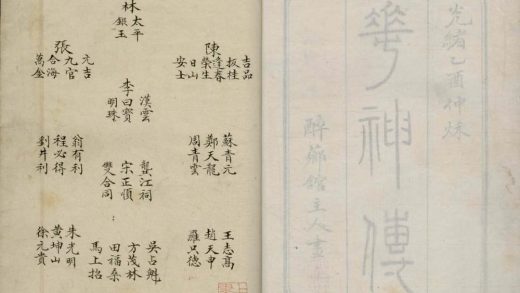 光緒乙酉仲秋
華神傳
醉館主人畫
林
太平
銀玉
陳
吉品
扳桂
逢春
榮生
日山
安士
張
元吉
九官
合海
萬金
李
漢雲
曰寶
明珠
蘇青元
鄭天龍
周青雲
龔江祠
宗正順
雙合同
翁有利
程必得
劉井利
王志高
趙天申
羅只德
吳占魁
方茂林
田福桑
馬上招
朱光明
黃坤山
徐元貴